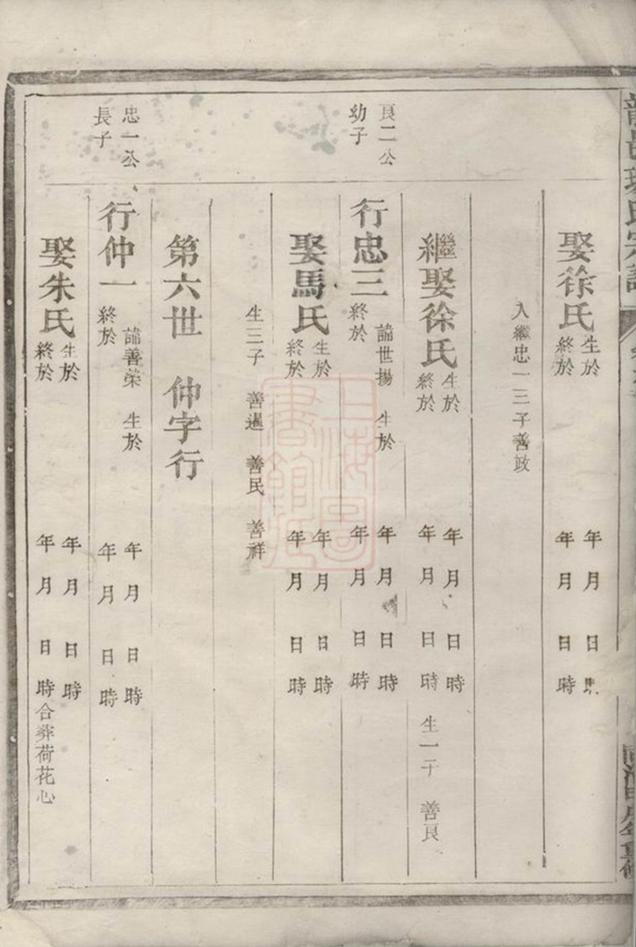 娶徐氏 生於 年 月 日 時
終於 年 月 日 時
入繼忠一三子善政
繼娶徐氏 生於 年 月 日 時
終於 年 月 日 時 生一子 善良
良二公
幼子
行忠三 諭世揚 生於 年 月 日 時
終於 年 月 日 時
娶馬氏 生於 年 月 日 時
終於 年 月 日 時
生三子 善暹 善民 善祥
第六世 仲字行
忠一公
長子
行仲一 諭善榮 生於 年 月 日 時
終於 年 月 日 時
娶朱氏 生於 年 月 日 時
終於 年 月 日 時 合葬荷花心